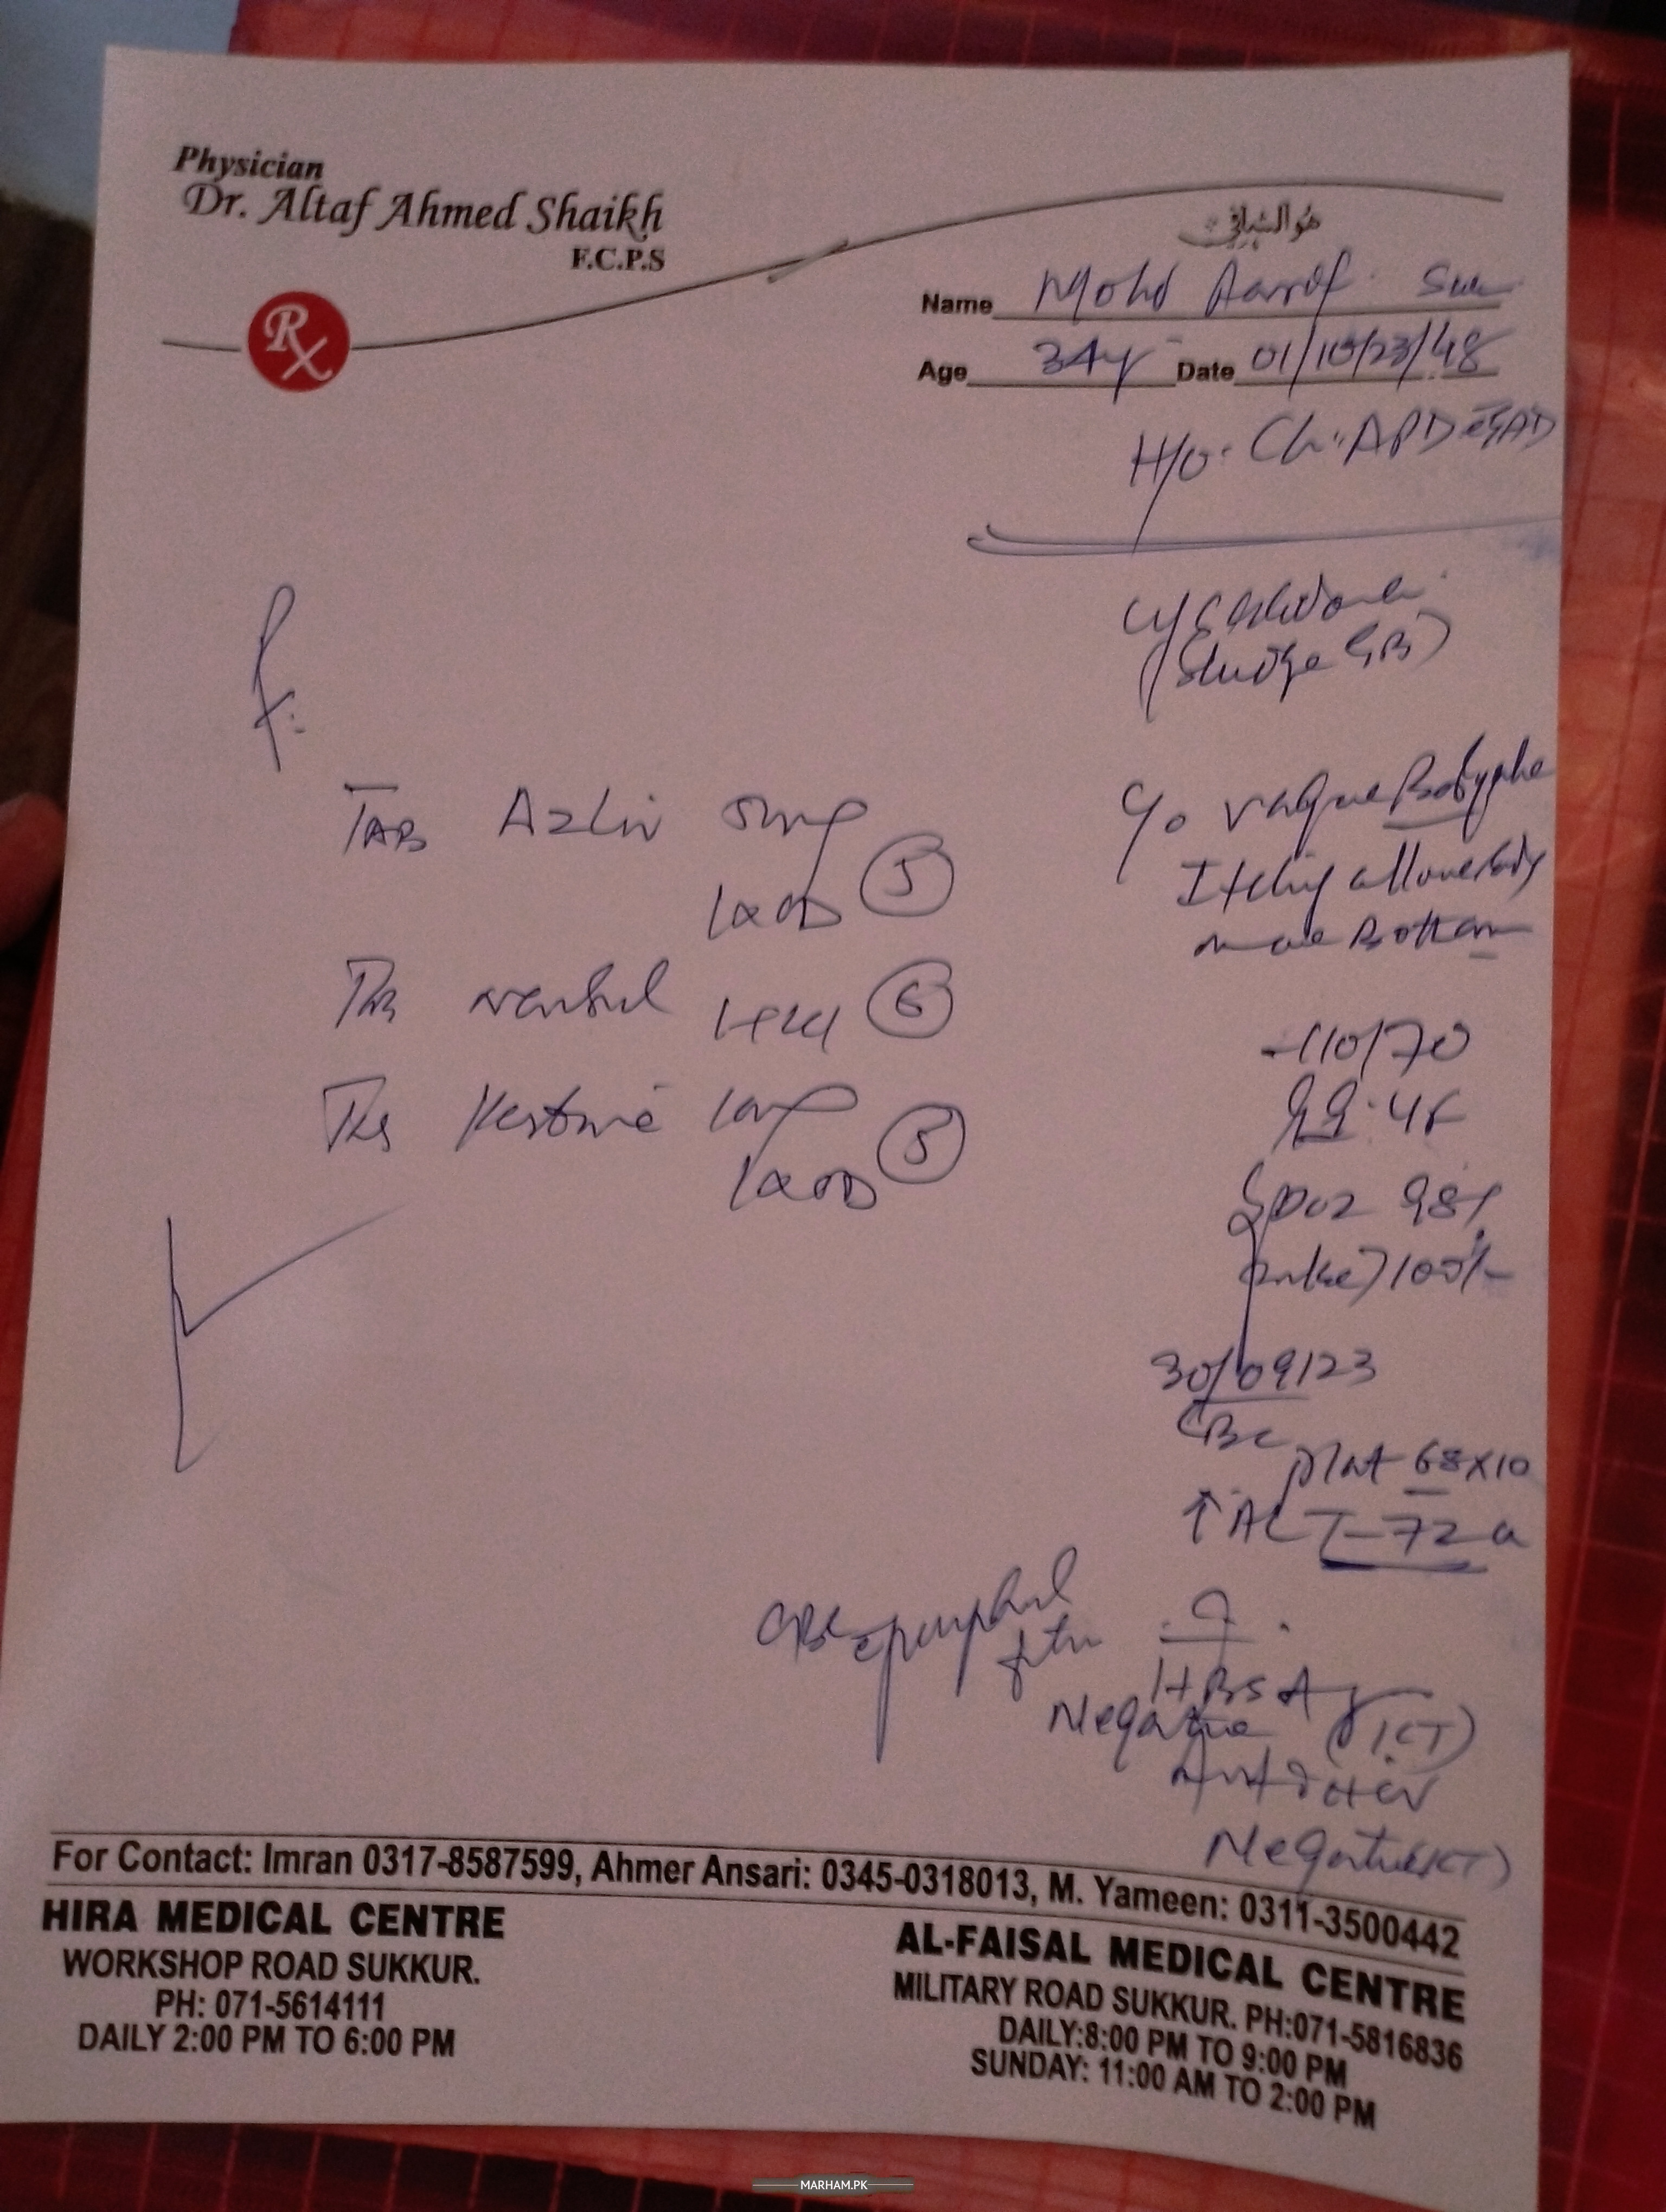 Physician
Dr. Altaf Ahmed Shaikh
F.C.P.S
Rx
هو الشافي
Name Mohd
Age 34y Date 01/10/23/48
H/O. Ch: APD
(Sludge GB)
C/o vague
Itching all over body
more Bottom
TAB Azlin
1x OD 5
6
Tab Kestine 10mg
1x OD 5
110/70
98.4F
SpO2 98%
Pulse 100/-
30/09/23
CBC
Plat 68x10
↑ ALT-72 u
CBC c peripheral
film
?
HBsAg
Negative (ICT)
Anti HCV
Negative (ICT)
For Contact: Imran 0317-8587599, Ahmer Ansari: 0345-0318013, M. Yameen: 0311-3500442
HIRA MEDICAL CENTRE
WORKSHOP ROAD SUKKUR.
PH: 071-5614111
DAILY 2:00 PM TO 6:00 PM
AL-FAISAL MEDICAL CENTRE
MILITARY ROAD SUKKUR. PH:071-5816836
DAILY:8:00 PM TO 9:00 PM
SUNDAY: 11:00 AM TO 2:00 PM
MARHAM.PK